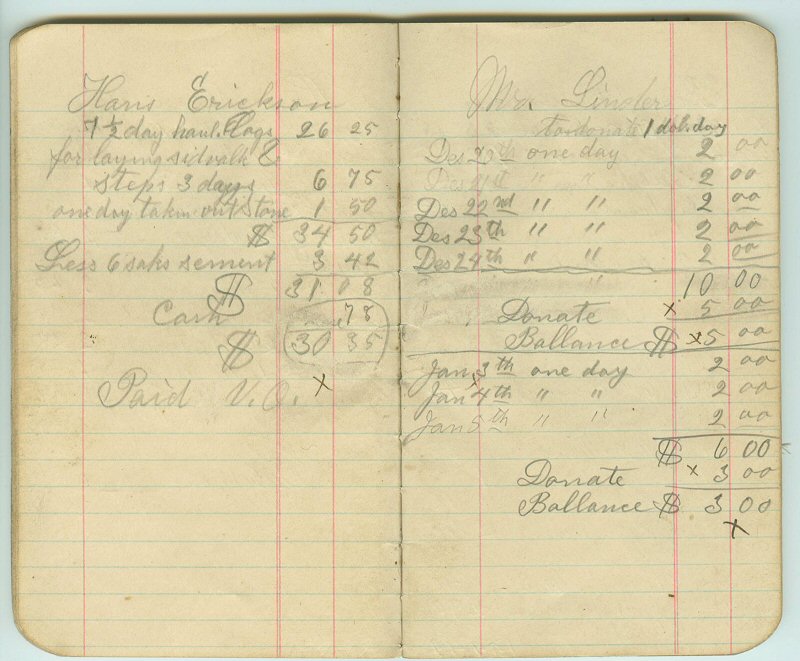 Hans Erickson
7 1/2 day haul. Logs 26 25
for laying sidvalk &
steps 3 days 6 75
one day taken out Stone 1 50
$ 34 50
Less 6 saks sement 3 42
$ 31 08
Cash 78
$ 30 35
Paid V.O. x
Mr. Linder
to donate 1 dol. day
Des 20th one day 2 00
Des 21st " " 2 00
Des 22nd " " 2 00
Des 23th " " 2 00
Des 24th " " 2 00
" 10 00
Donate x 5 00
Ballance $ x5 00
Jan 3th one day 2 00
Jan 4th " " 2 00
Jan 5th " " 2 00
$ 6 00
Donate x 3 00
Ballance $ 3 00
x